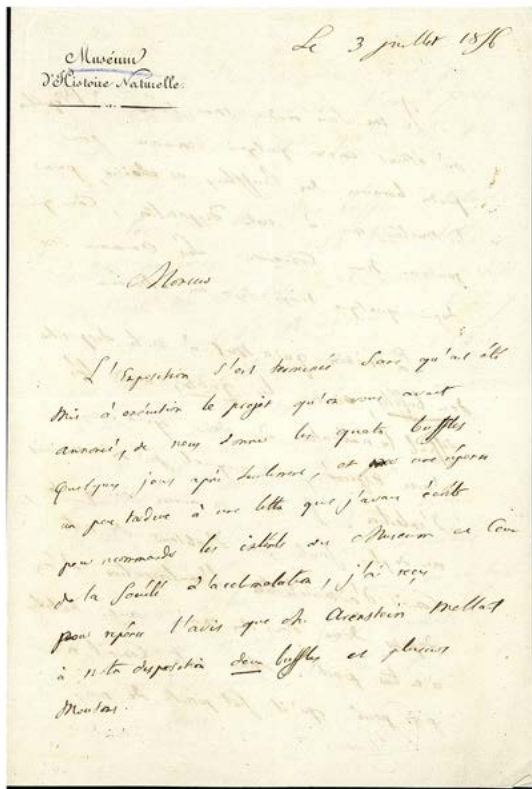 Muséum
d'Histoire Naturelle.
Le 3 juillet 1856
Monsieur
L'Exposition s'est terminée sans qu'ait été
mis à exécution le projet qu'on vous avait
annoncé, de nous donner les quatre buffles
Quelques jours après seulement, et une réponse
un peu tardive à une lettre que j'avais écrite
pour recommander les intérêts du Muséum et Ceux
de la Société d'acclimatation, j'ai reçu
pour réponse l'avis que Mr. Arenstein mettait
à notre disposition deux buffles et plusieurs
Moutons.